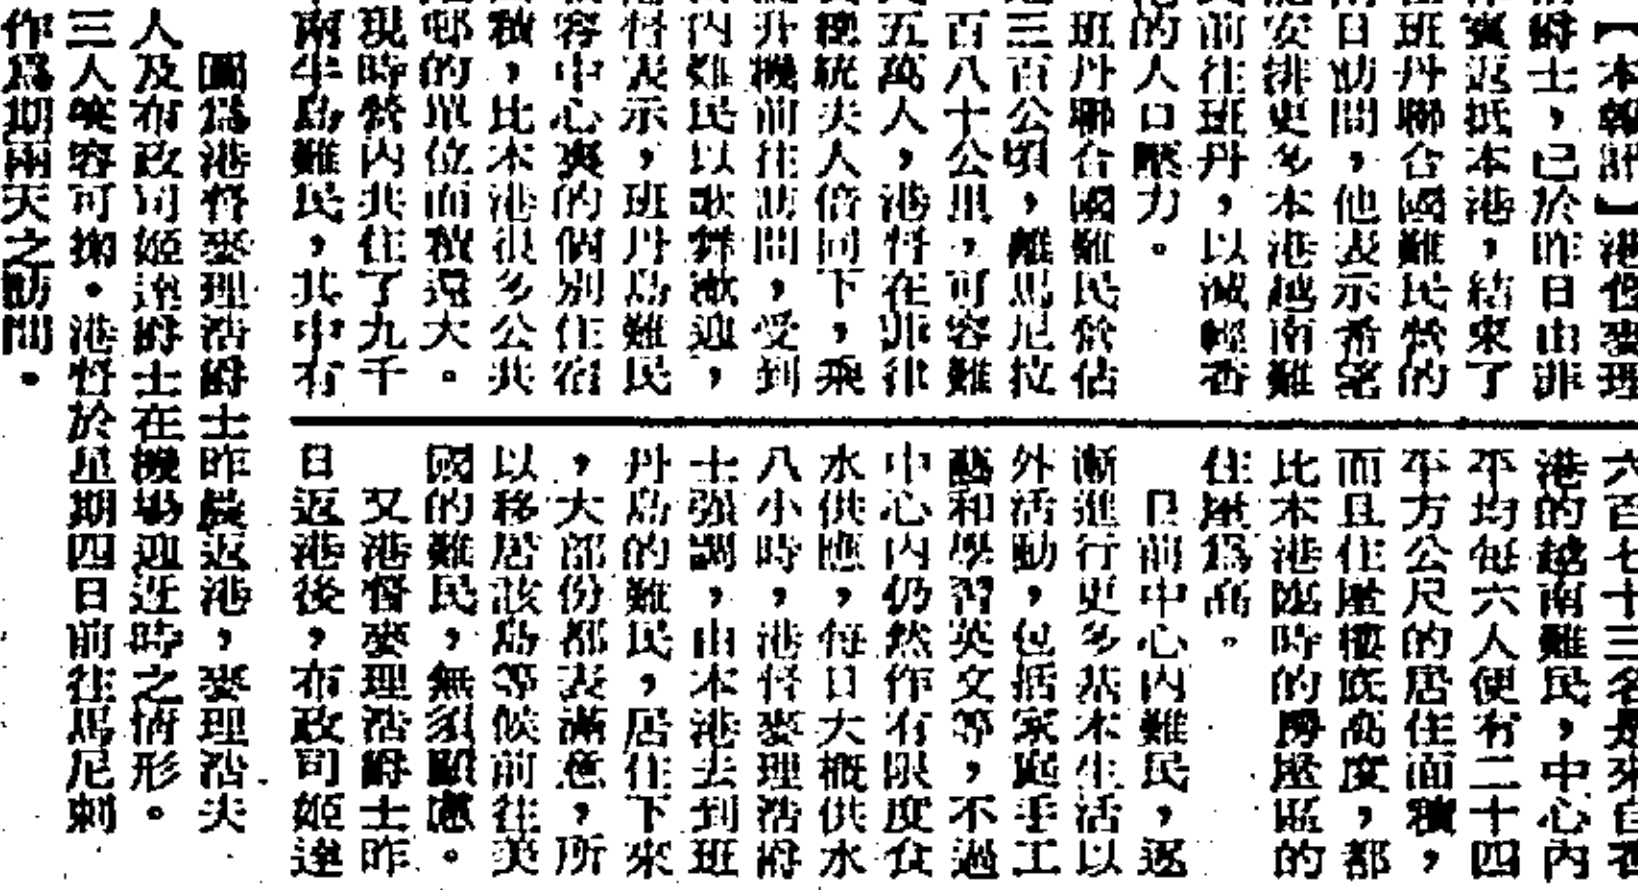 【本報訊】港督麥理
爵士，已於昨日由菲
賓返抵本港，結束了
班丹聯合國難民營的
日訪問，他表示希望
安排更多本港越南難
前往班丹，以減輕香
的人口壓力。
班丹聯合國難民營佔
三百公頃，離馬尼拉
百八十公里，可容難
五萬人，港督在菲律
總統夫人倍同下，乘
升機前往訪問，受到
內難民以歌舞歡迎，
督表示，班丹島難民
容中心裏的個別住宿
積，比本港很多公共
邨的單位面積還大。
現時營內共住了九千
兩半島難民，其中有
六百七十三名是來自香
港的越南難民，中心內
平均每六人便有二十四
平方公尺的居住面積，
而且住屋樓底高度，都
比本港臨時的房屋區的
住屋爲高。
目前中心內難民，逐
漸進行更多基本生活以
外活動，包括家庭手工
藝和學習英文等，不過
中心內仍然作有限度食
水供應，每日大概供水
八小時，港督麥理浩爵
士強調，由本港去到班
丹島的難民，居住下來
，大部份都表滿意，所
以移居該島等候前往美
國的難民，無須顧慮。
又港督麥理浩爵士昨
日返港後，布政司姬達
圖爲港督麥理浩爵士昨晨返港，麥理浩夫
人及布政司姬達爵士在機場迎迓時之情形。
三人笑容可掬。港督於星期四日前往馬尼剌
作爲期兩天之訪問。